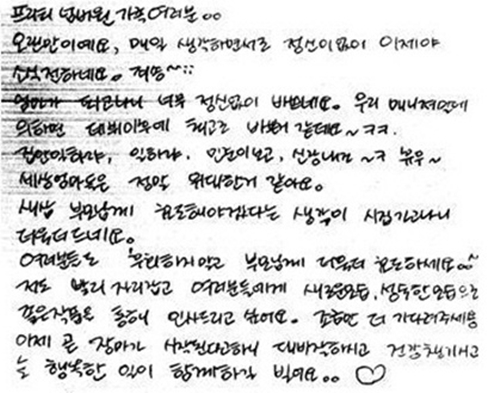 프리티 넘버원 가족 여러분..
오랜만이예요, 매일 생각하면서도 정신이없이 이제야
소식전하네요. 죄송~;;
엄마가 되고나니 너무 정신없이 바쁘네요. 우리 매니져언데
의하면 데뷔이후에 최고로 바쁜거 같데요~ㅋㅋ.
집안일하랴, 일하랴, 민토이보고, 신랑내조~ㅋ 부우~
세상엄마들은 정말 위대한거 같아요.
새삼 부모님께 효도해야겠다는 생각이 시집가고나니
더욱더 드네요.
여러분들도 후회하지않고 부모님께 더욱더 효도하세요..^
저도 빨리 자리잡고 여러분들에게 새로운모습, 성숙한모습으로
좋은작품을 통해 인사드리고 싶어요. 조금만 더 기다려주세용
이제 곧 장마가 시작된다고하니 대비잘하시고 건강챙기시고
늘 행복한 일이 함께하길 빌어요.. ♡